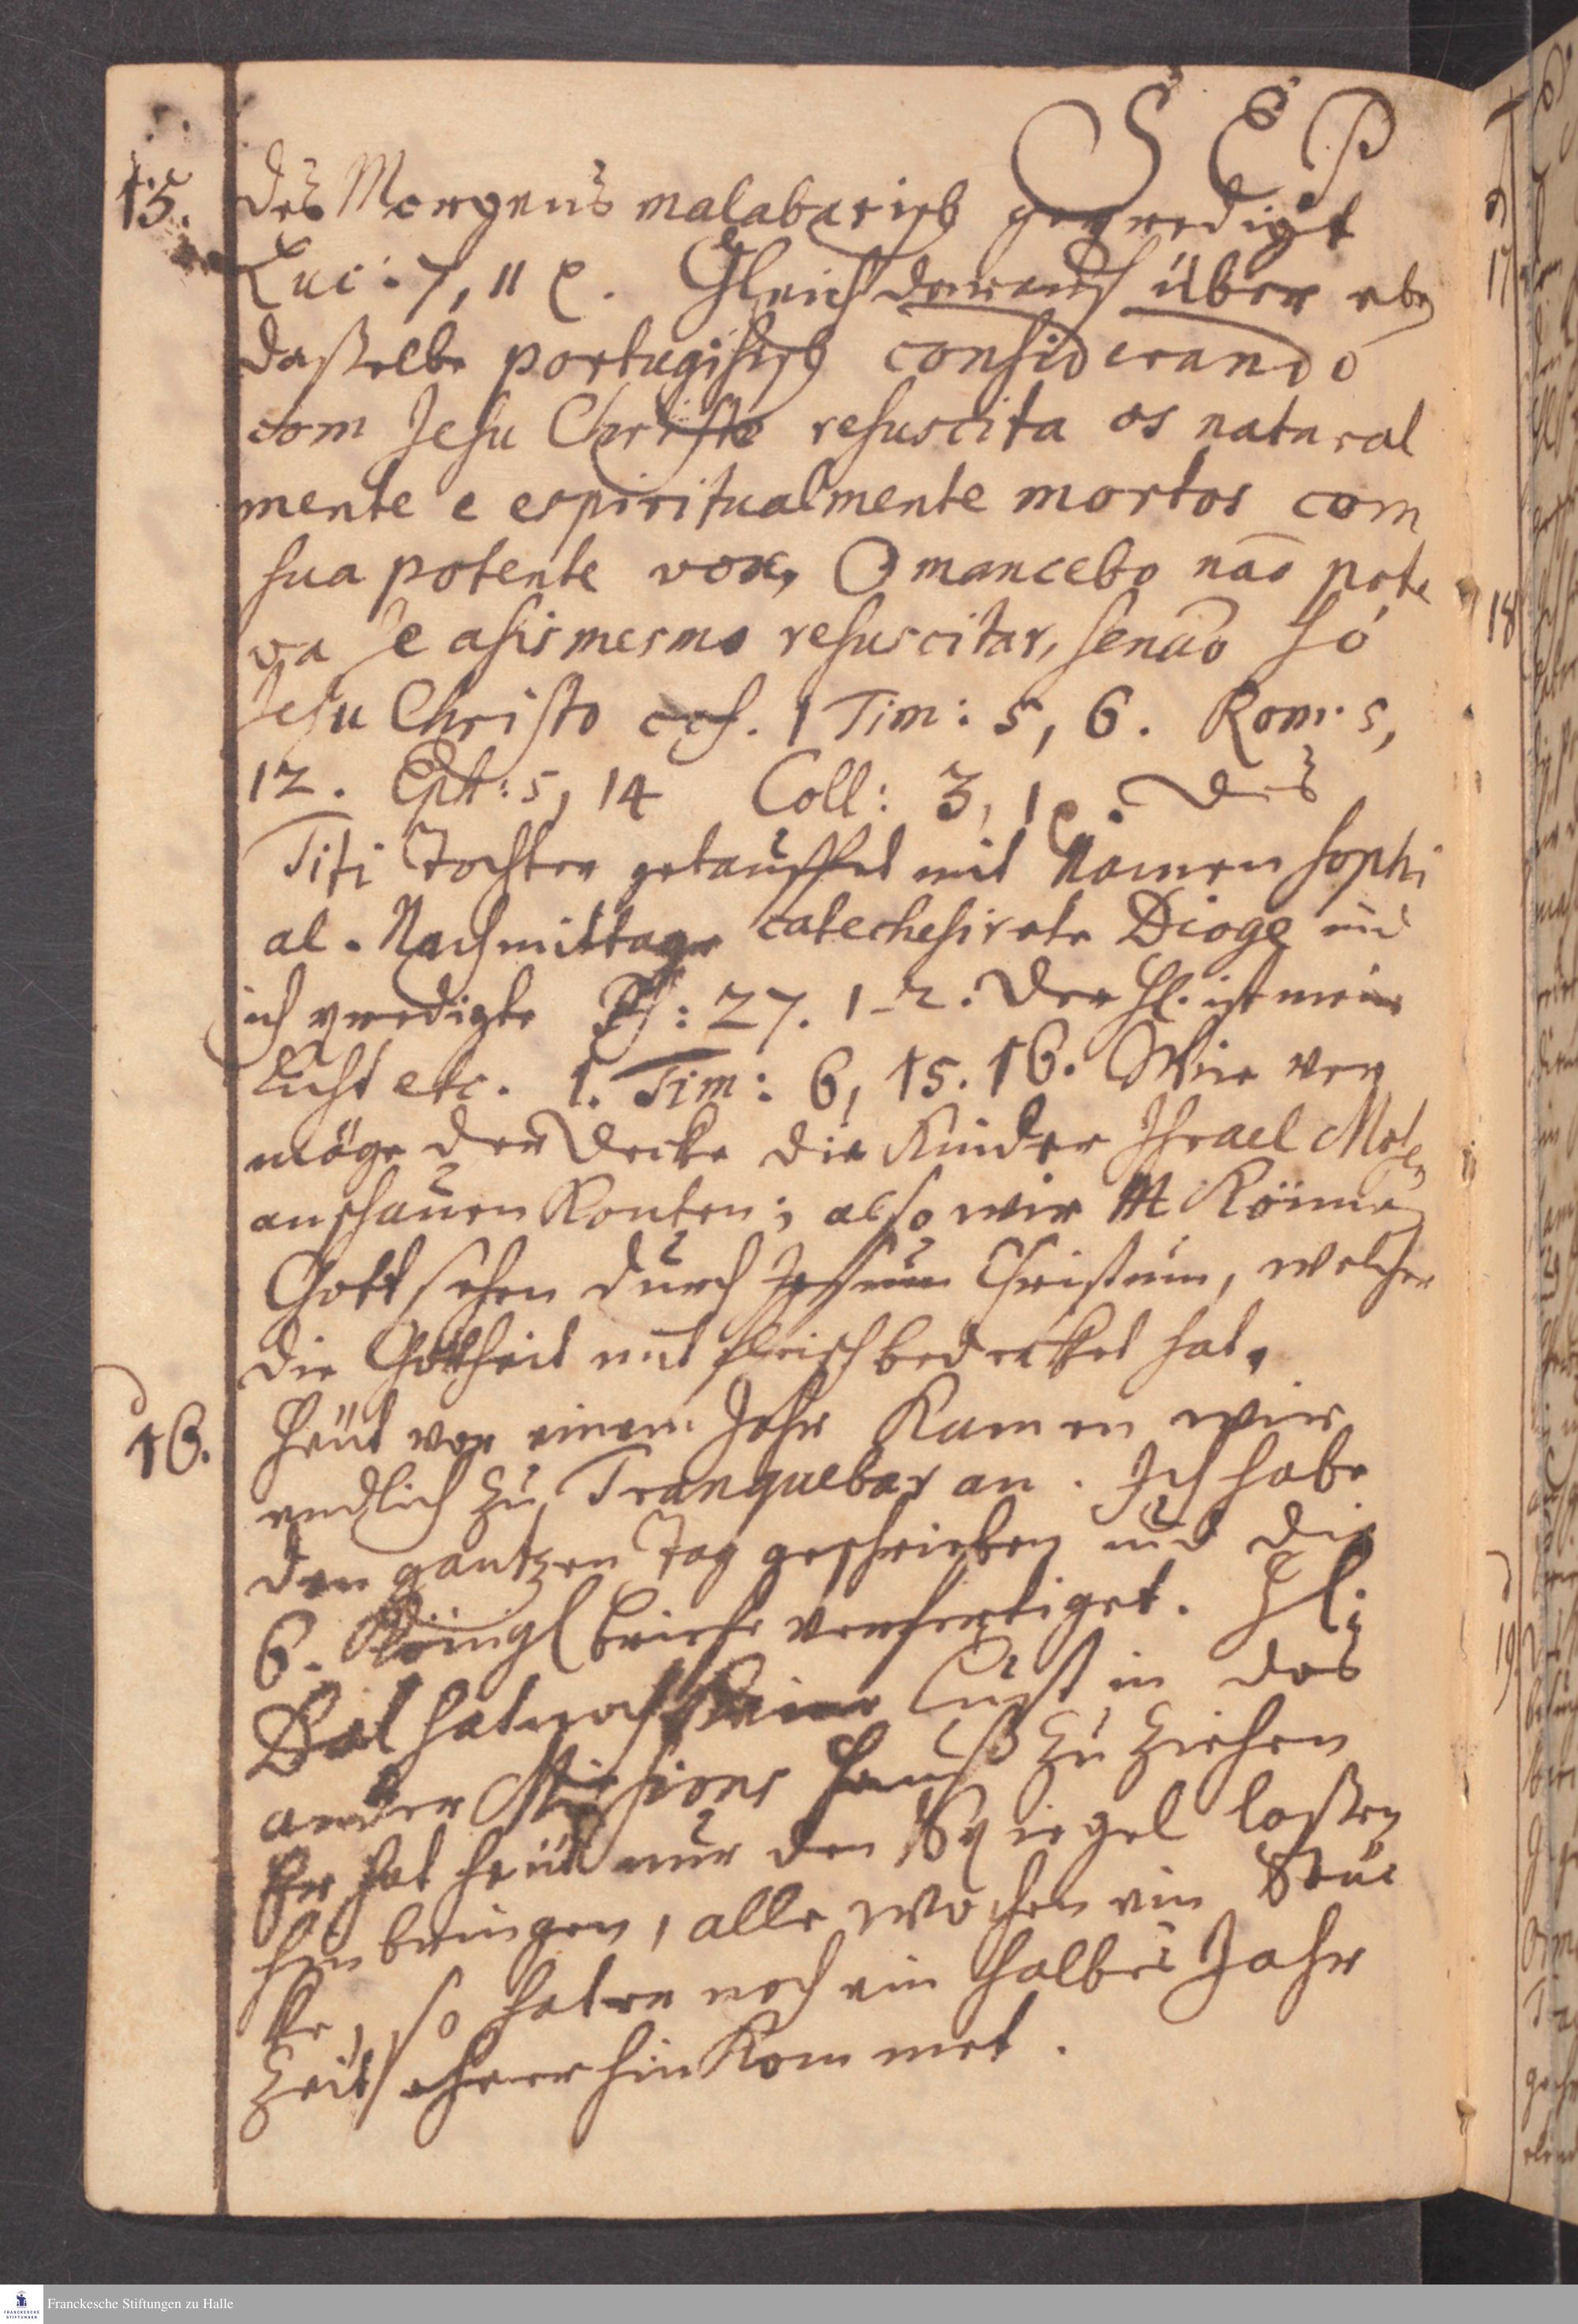 SEP
15. des Morgens malabarisch gepredigt
Luc: 7, 11 e. Gleich darauf über eben
daßelbe portugisisch considerando
com Jesu Christo resuscita os natural
mente e espiritualmente mortos com
sua potente vox, O mancebo naõ pode
va se asismesmo resuscitar, senaõ só
Jesu Christo ccf. 1 Tim: 5, 6. Rom: 5,
12. Eph: 5, 14 Coll: 3, 1 e. des
Titi Tochter getauffet mit Namen Sophi
al. Nachmittage catechesirete Diogo und
ich predigte Ps: 27. 1-2. Der H. ist mein
Licht etc. 1. Tim: 6, 15. 16. Wie ver
möge der Decke die Kinder Israel Mosen
anschauen Konten; also wir Können
Gott sehen durch Jesum Christum, welcher
die Gottheit mit fleisch bedecket hat.
16. Heut vor einem Jahr Kamen wir
endlich zu Tranquebar an. Ich habe
den gantzen Tag geschrieben und die
6. Königl briefe verfertiget. H:
Dal hat noch Keine Lust in das
ander Missions Hauß zu ziehen
Er hat heut nur den Spiegel laßen
hinbringen, alle Wochen ein Stüc
ke, so hat er noch ein halbes Jahr
Zeit eher er hin Kommet.
17
18
19.
Franckesche Stiftungen zu Halle